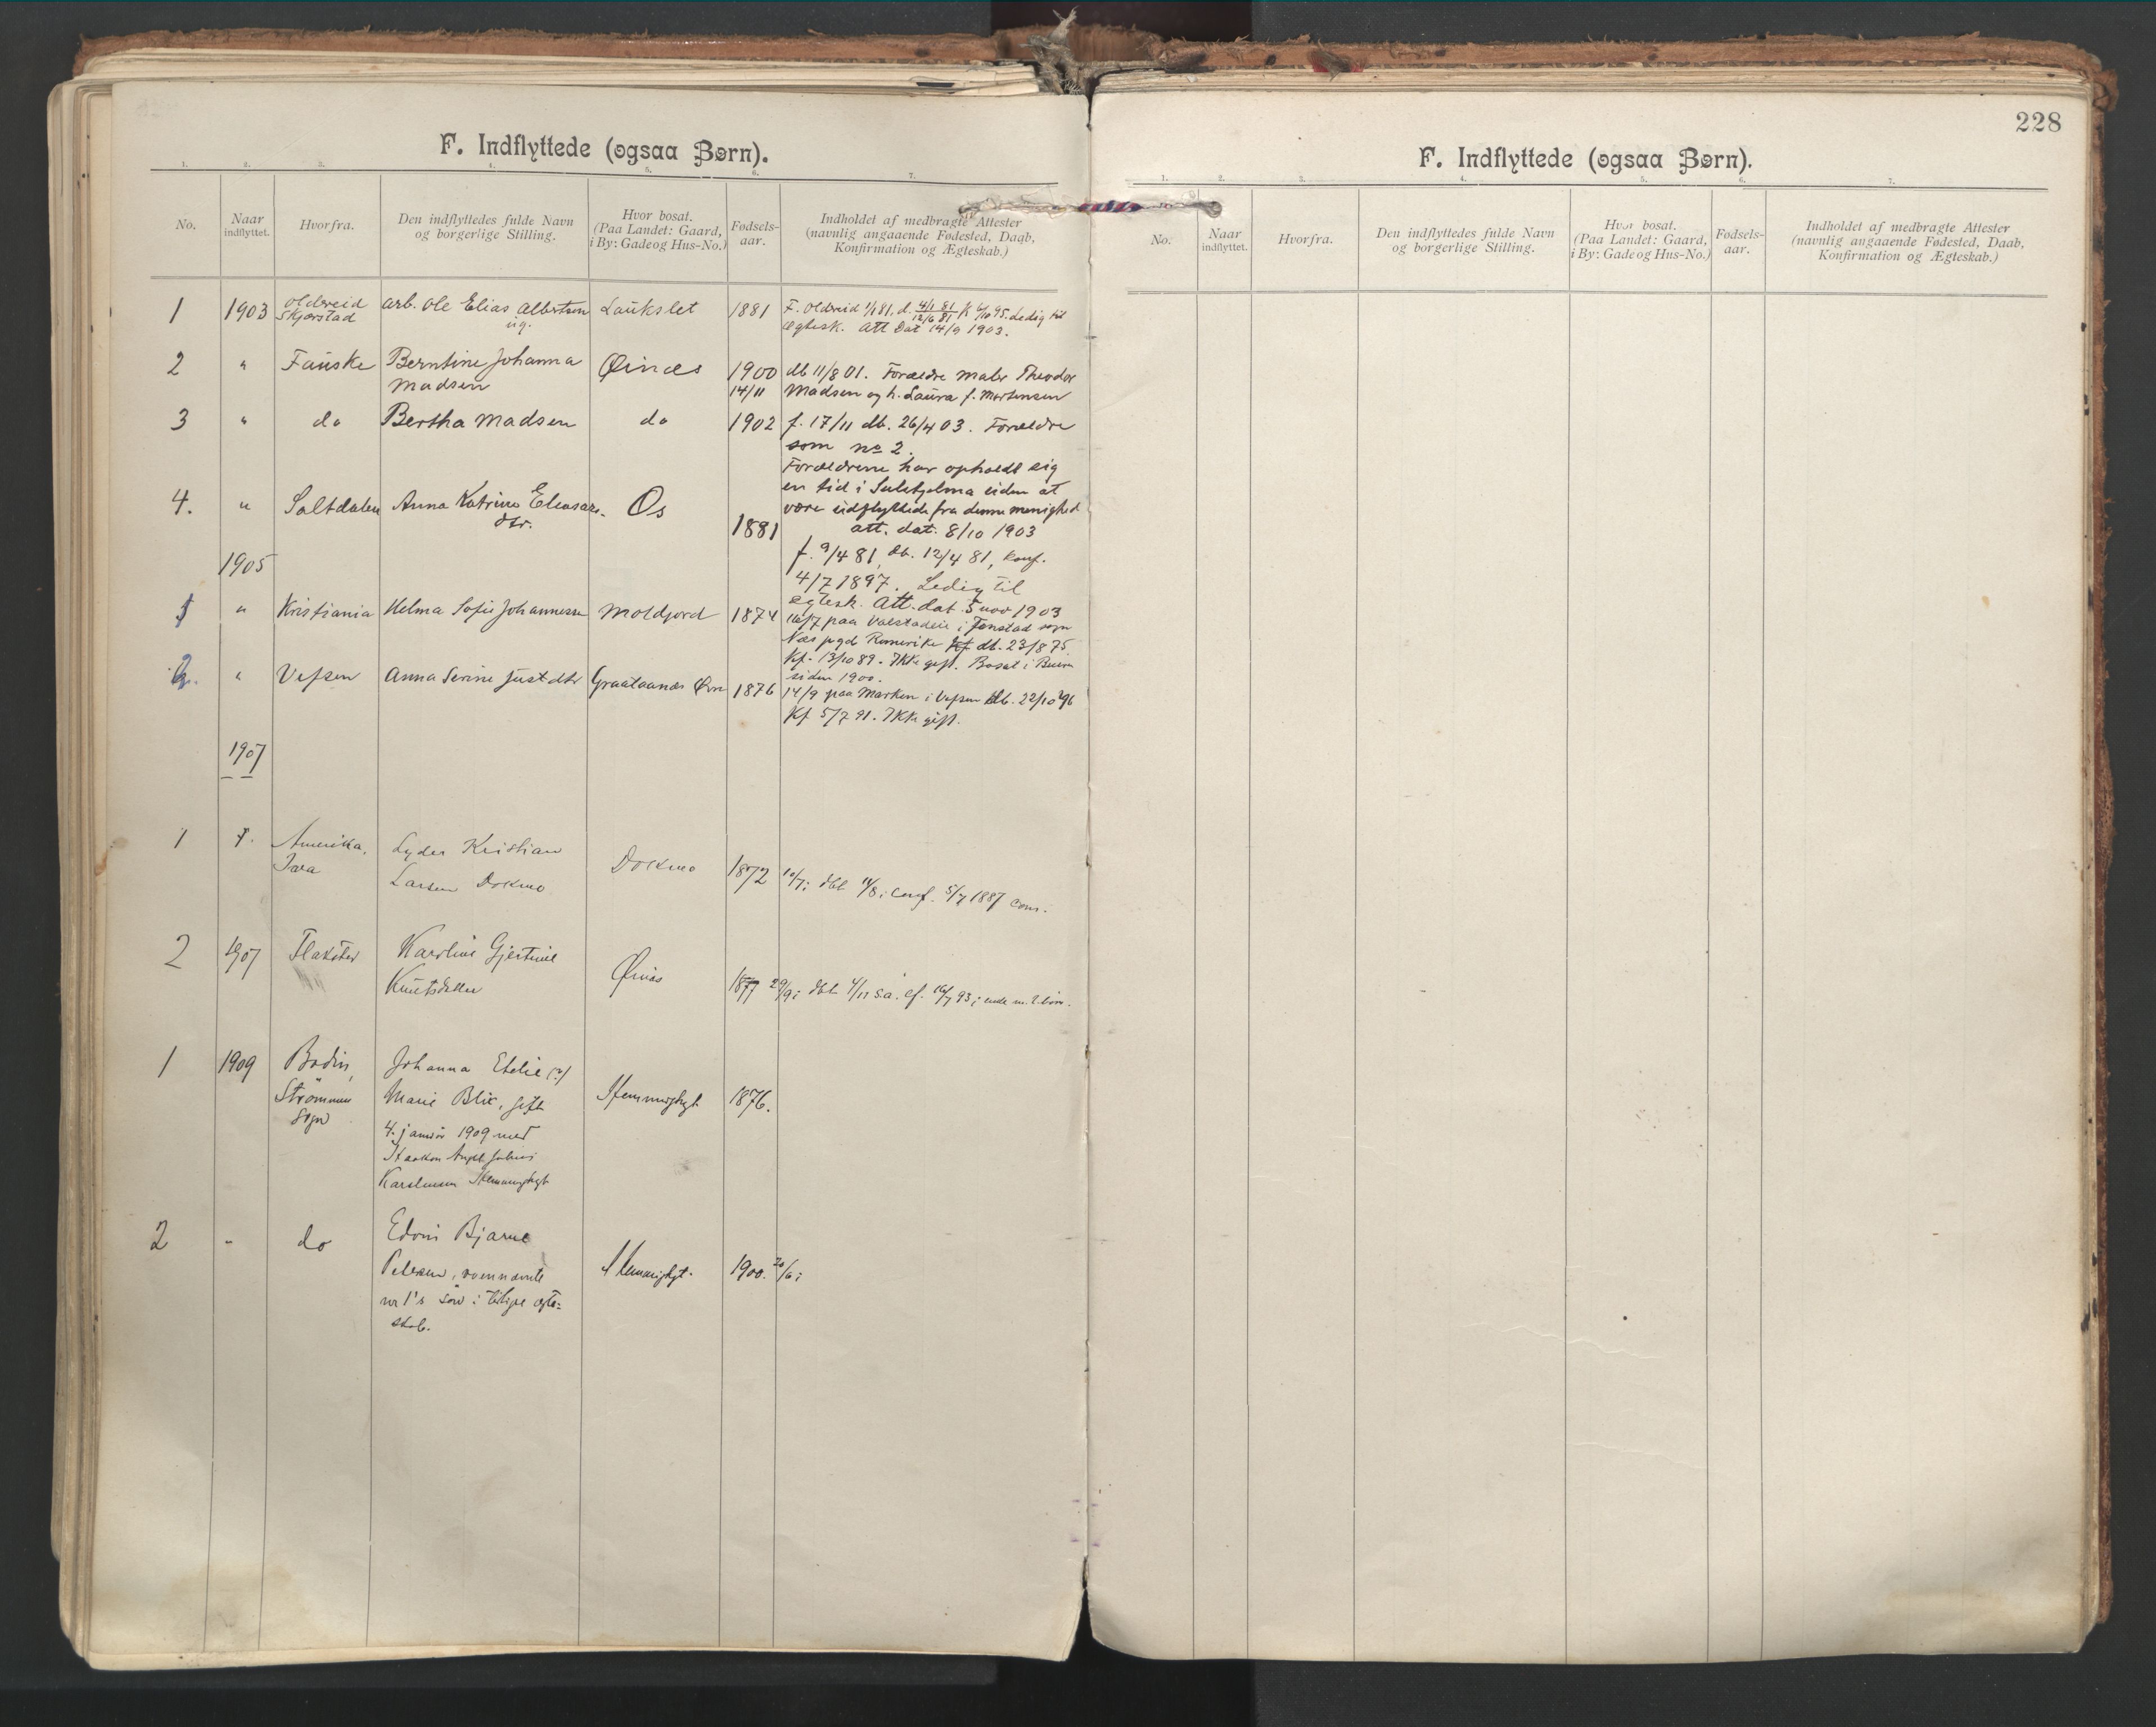 F. Indflyttede (ogsaa Børn).
1. 2. 3. 4. 5. 6. 7.
No.
Naar indflyttet.
Hvorfra.
Den indflyttedes fulde Navn og borgerlige Stilling.
Hvor bosat. (Paa Landet: Gaard, i By: Gade og Hus-No.)
Fødsels-aar.
Indholdet af medbragte Attester (navnlig angaaende Fødested, Daab, Konfirmation og Ægteskab.)
1 1903 Oldereid arb. Ole Elias Albertsen Laukslet 1881 F. Oldereid 1/1 81, d. 4/1 81 K 6/10 95. Ledig til
Skjerstad ug. 12/6 81 ægtesk. Att Dat 14/9 1903.
2 " Fauske Berntine Johanna Øinæs 1900 db 11/8 01. Forældre maler Theodor
Madsen 14/11 Madsen og h. Laura f. Mortensen
3 " do Bertha Madsen do 1902 f. 17/11 db. 26/4 03. Forældre
som no 2.
Forældrene har opholdt sig
en tid i Sulitjelma siden at
4. " Saltdalen Anna Katrine Eleasars- Os være udflyttede fra denne menighed
dtr. 1881 att. dat. 8/10 1903
f. 9/4 81, db. 12/4 81, konf.
1905
4/7 1897. Ledig til
egtesk. Att. dat. 5 nov 1903
1 " Kristiania Helma Sofie Johannessen Moldjord 1874 16/7 paa Valstadeie i Fenstad sogn
Næs pgd Romerike Kf db. 23/8 75.
Kf. 13/10 89. Ikke gift. Bosat i
siden 1900.
2. " Vefsen Anna Serine Justdtr Graataanæs Øvre 1876 14/9 paa Marken i Vefsen db. 22/10 96
Kf 5/7 91. Ikke gift.
1907
1 Amerika, Lyder Kristian Dokmo 1872 10/7; dbt 11/8; conf. 5/7 1887
Larsen Dokmo
2 1907 Flakstad Karoline Gjertine Øinæs 1877 29/9; dbt 4/11 s.a. cf. 16/7 93; enke m. 2 børn.
Knutsdatter
1 1909 Bodin, Johanna Etelie (?) Hemmingbygt 1876.
Strömmen Marie Blix, gift
Sogn 4. januar 1909 med
Haakon Angel Julius
Karelinsen Hemmingbygt
2 " do Edvin Bjarne Hemmingbygt. 1900. 20/6;
Petersen, ovennævnte
nr 1's søn i tidligere ægte-
skab.
228
F. Indflyttede (ogsaa Børn).
1. 2. 3. 4. 5. 6. 7.
No.
Naar indflyttet.
Hvorfra.
Den indflyttedes fulde Navn og borgerlige Stilling.
Hvor bosat. (Paa Landet: Gaard, i By: Gade og Hus-No.)
Fødsels-aar.
Indholdet af medbragte Attester (navnlig angaaende Fødested, Daab, Konfirmation og Ægteskab.)